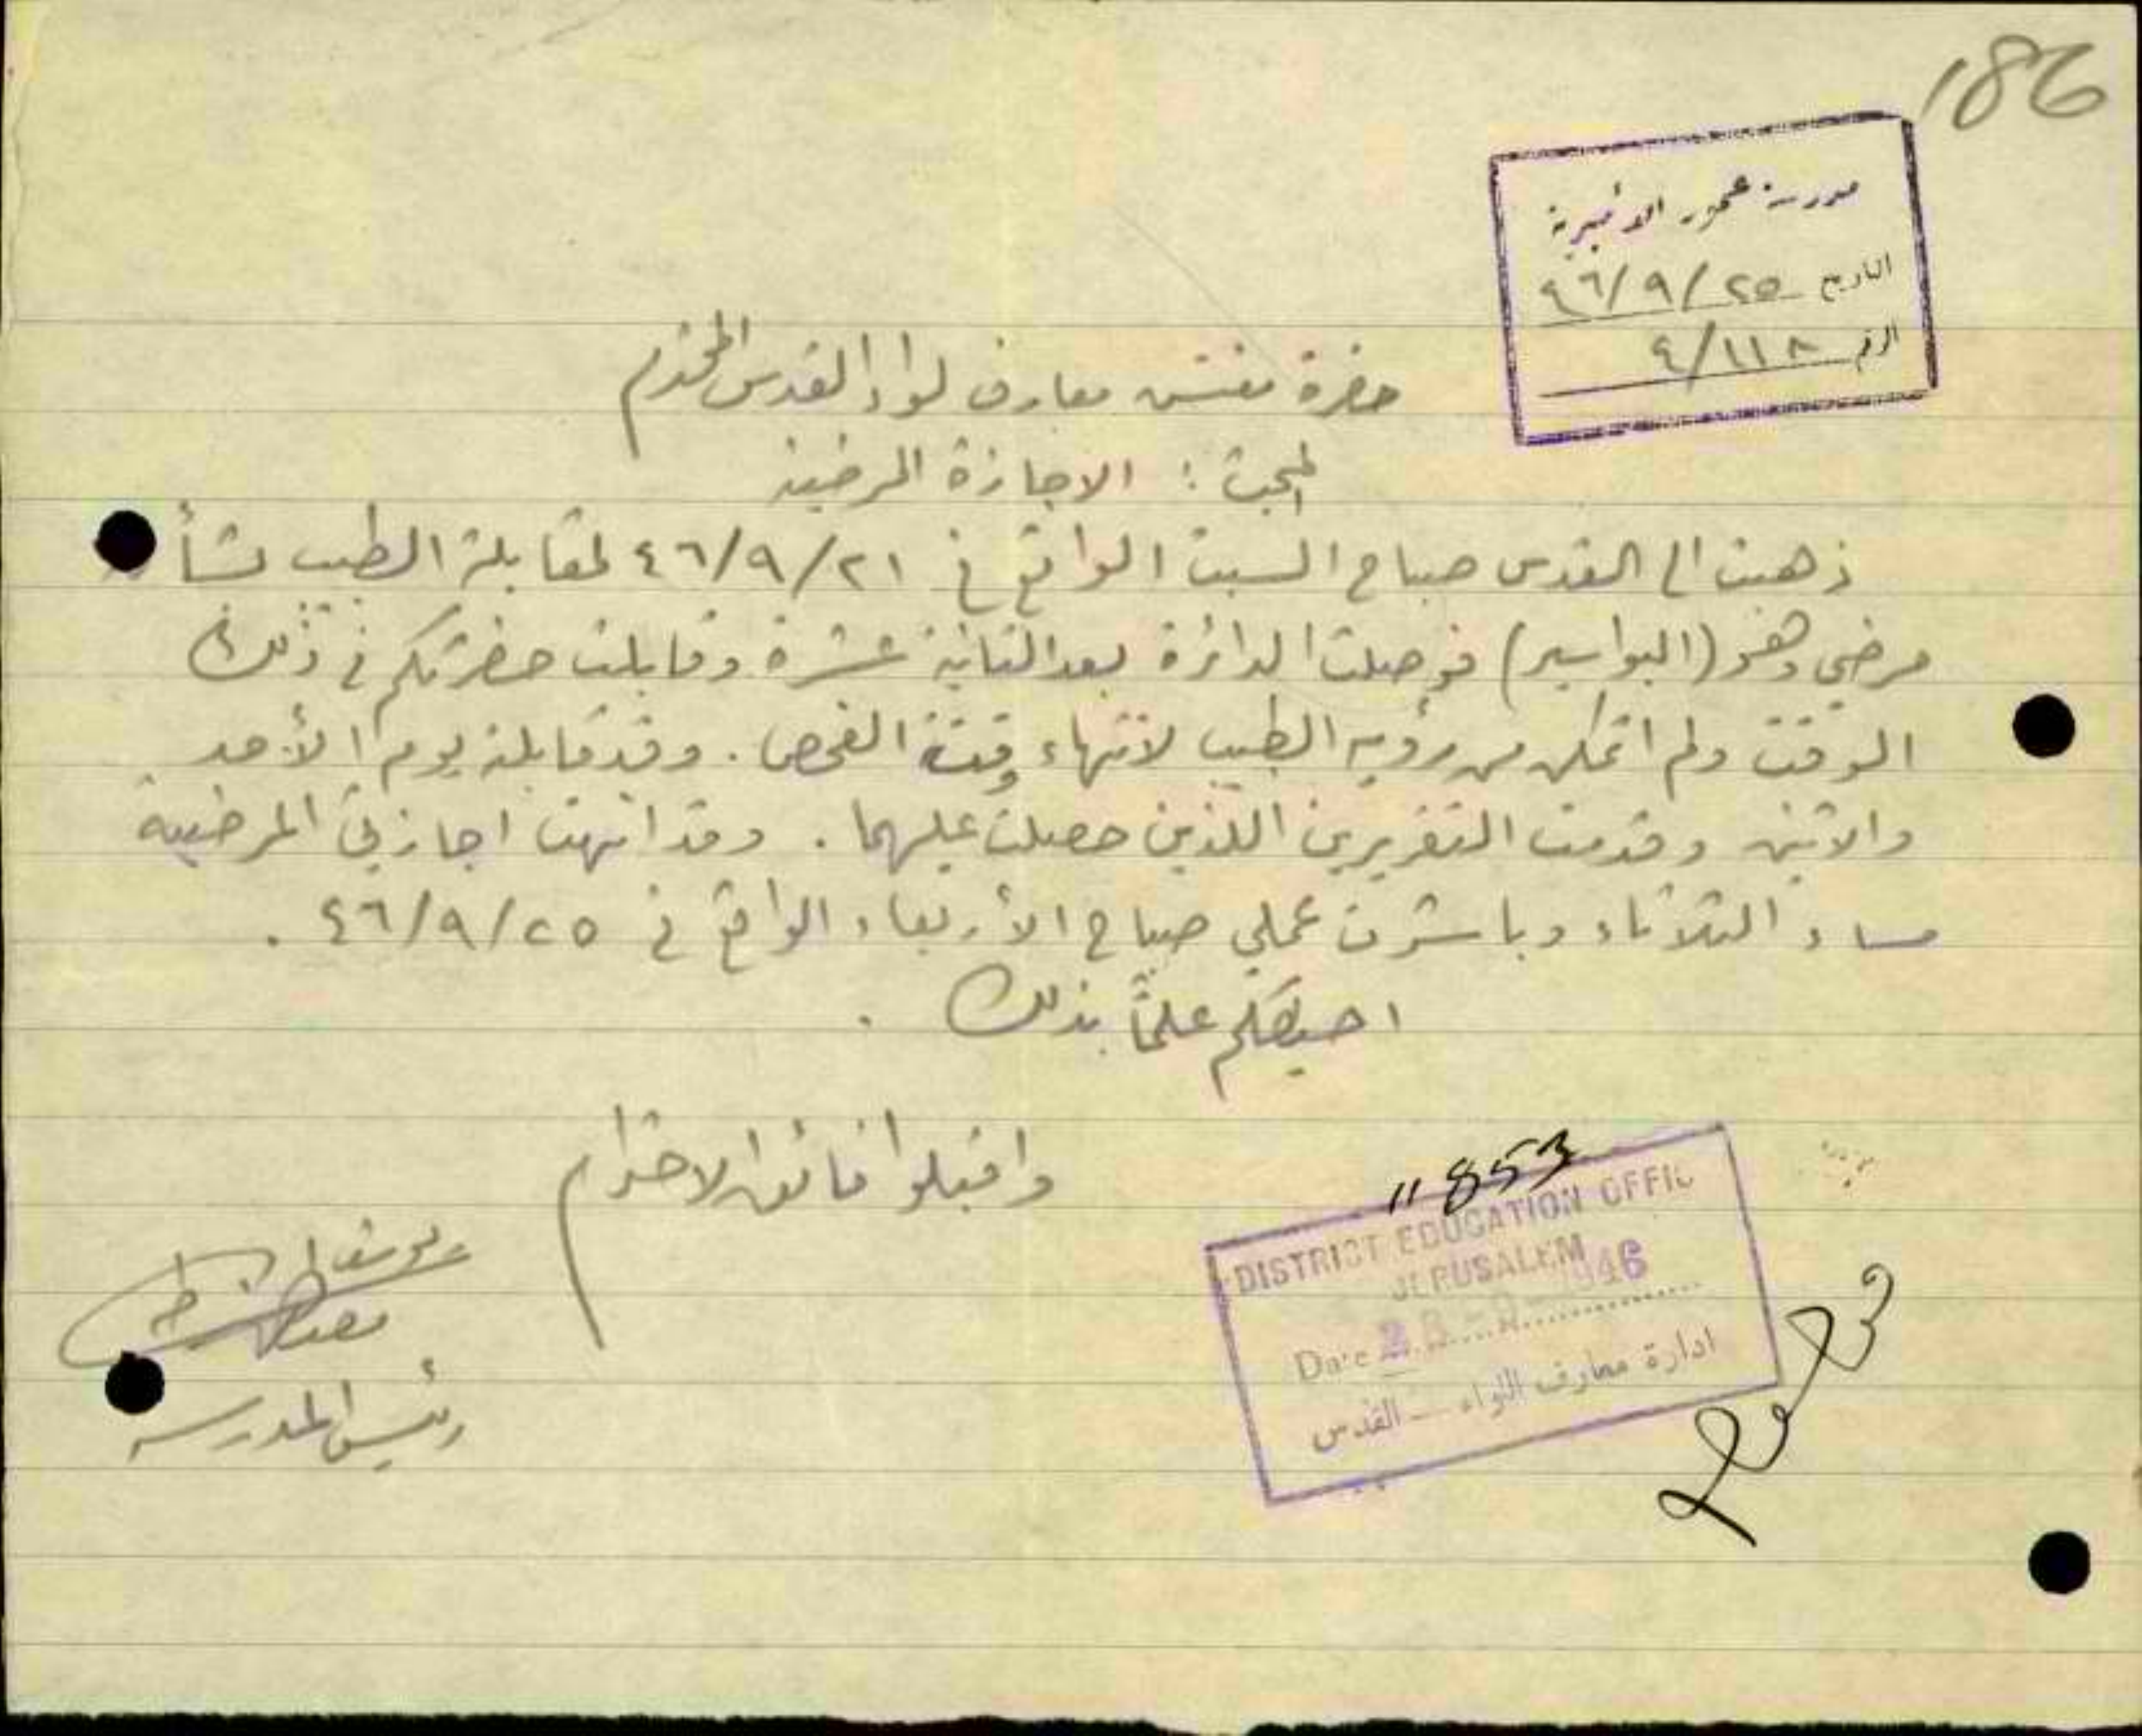 186
مدرسة عجور الاميرية
التاريخ ٤٦/٩/٢٥
الرقم ٤/١١٨
حضرة مفتش معارف لواء القدس المحترم
المبحث : الاجازة المرضية
ذهبت الى القدس صباح السبت الواقع في ٤٦/٩/٢١ لمقابلة الطبيب بشأن
مرضي وهو (البواسير) فوصلت الدائرة بعد الثانية عشرة وقابلت حضرتكم في ذلك
الوقت ولم اتمكن من رؤية الطبيب لانتهاء وقت الفحص . وقد قابلته يوم الأحد
والاثنين وقدمت التقريرين اللذين حصلت عليهما . وقد انتهت اجازتي المرضية
مساء الثلاثاء وباشرت عملي صباح الأربعاء الواقع في ٤٦/٩/٢٥ .
احيطكم علماً بذلك .
واقبلوا فائق الاحترام
رئيس المدرسة
11853
DISTRICT EDUCATION OFFIC
JERUSALEM
Date 1946
ادارة معارف اللواء - القدس